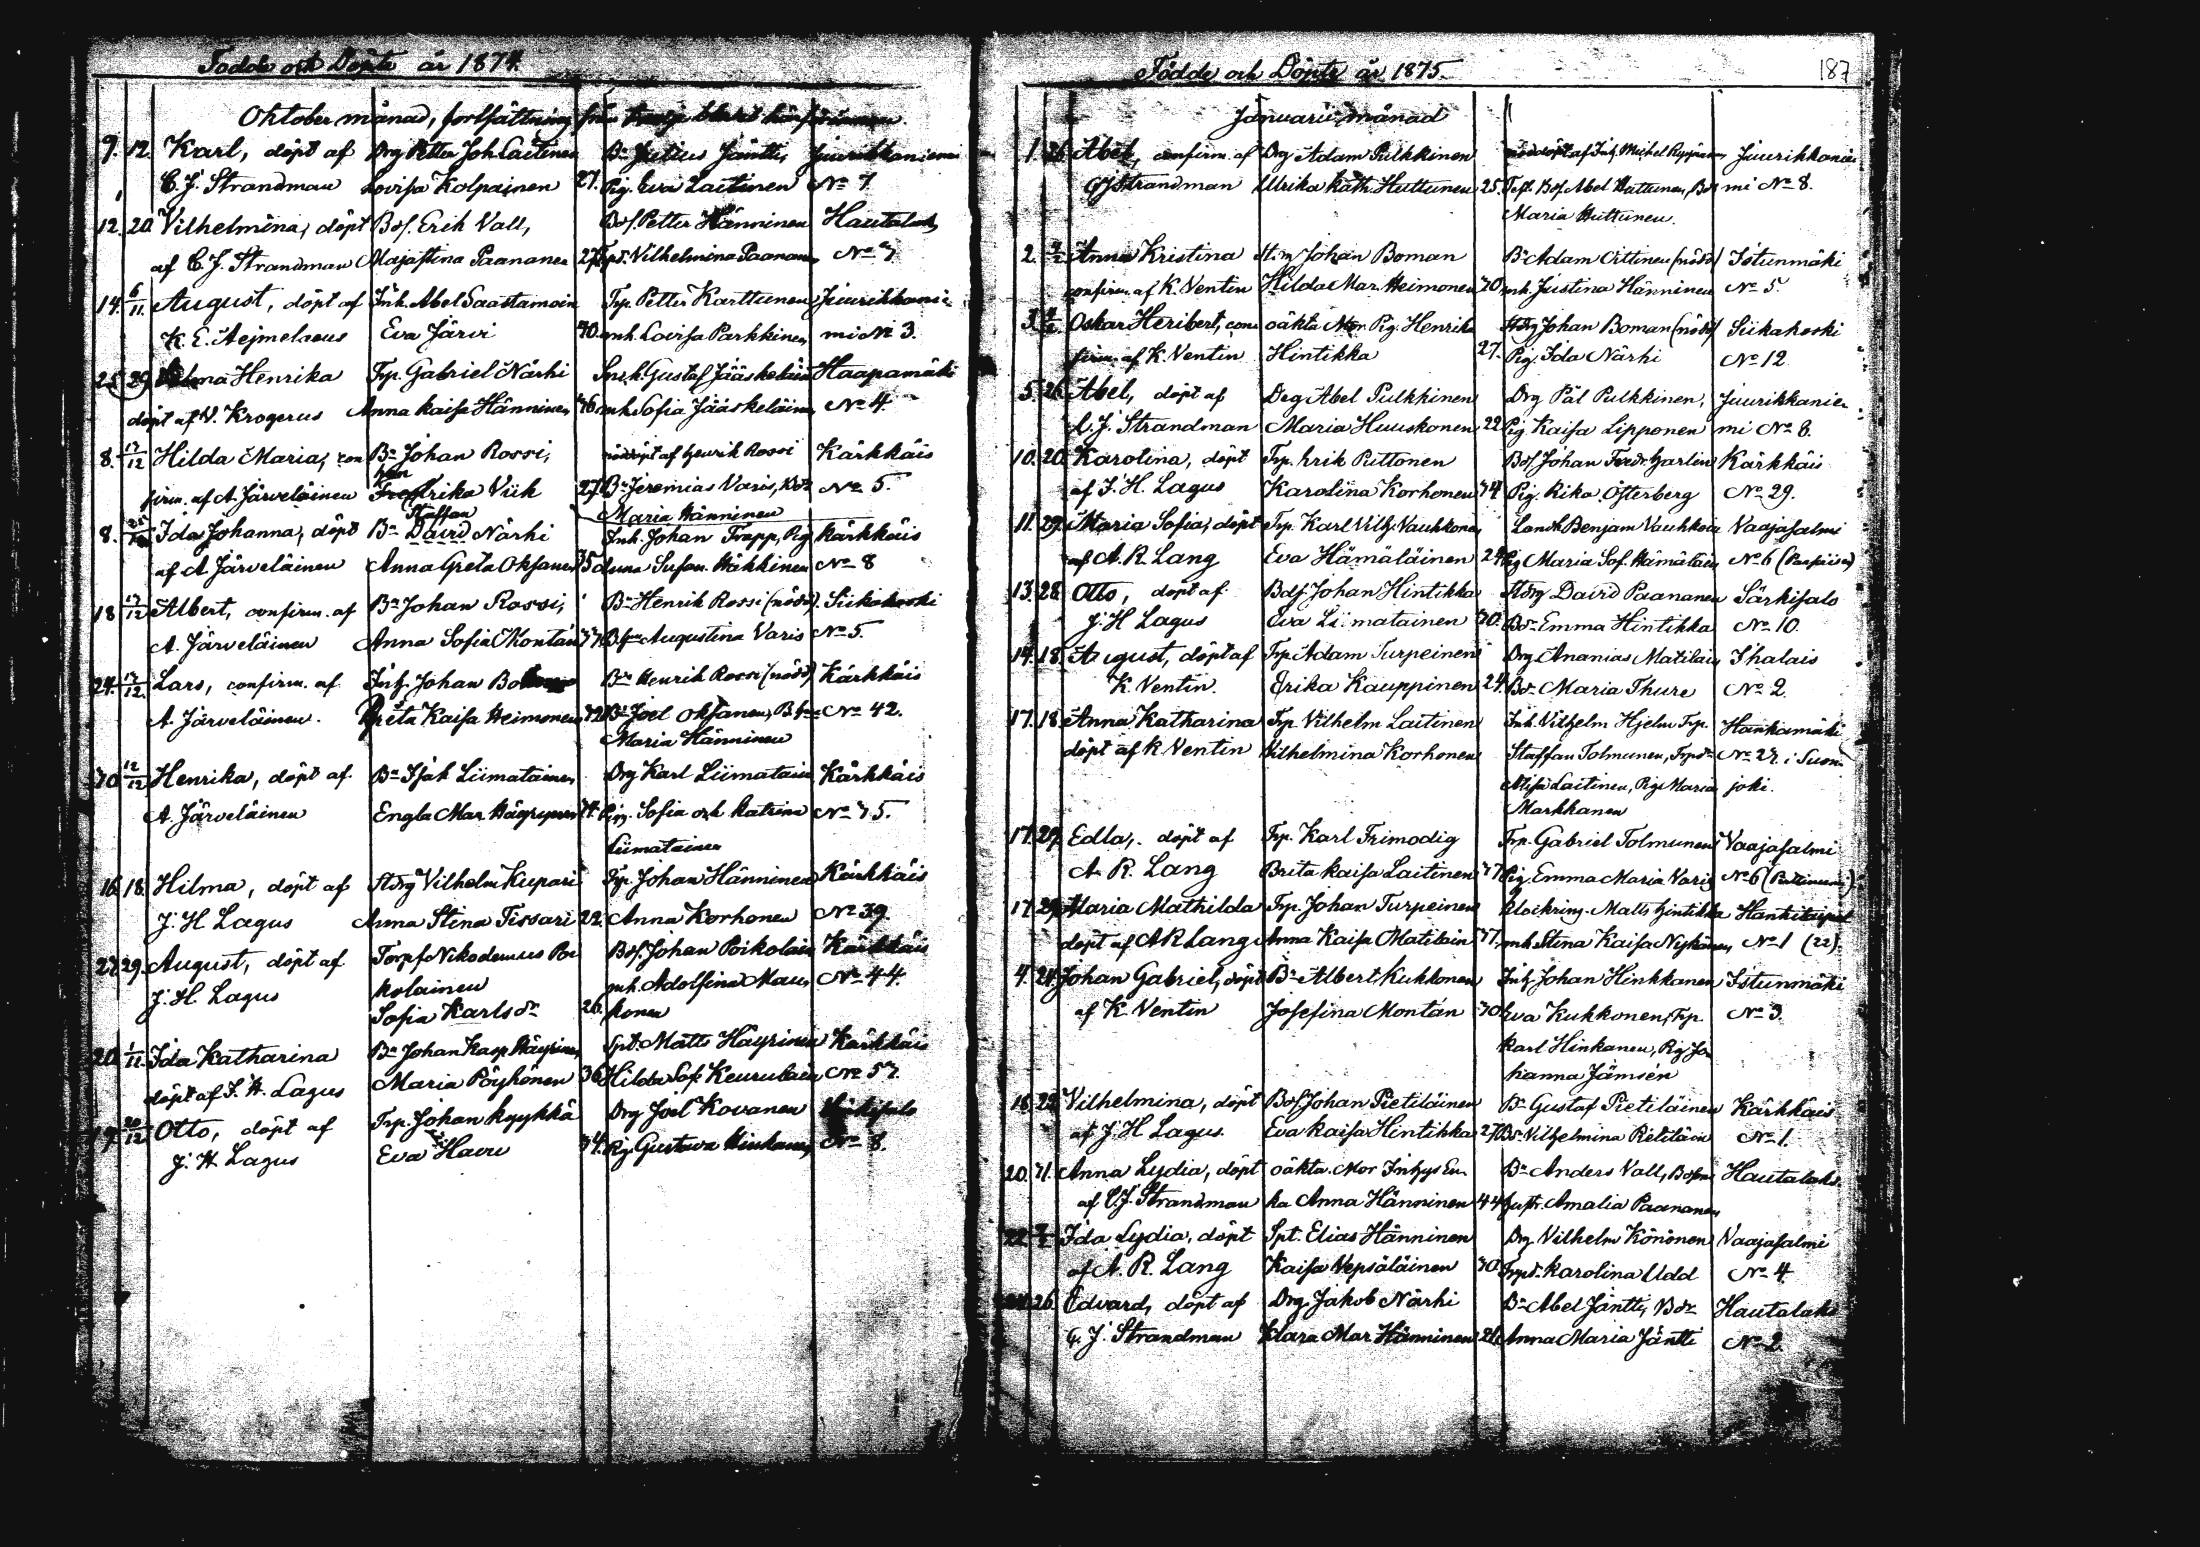 Födde och Döpte år 1874.
Oktober månad, fortsättning från
9. 12. Karl, döpt af Drg Petter Joh Laitinen Bn Julius Jäntti, Juurikkaniemi
C. J. Strandman Lovisa Kolpainen 27. Pig. Eva Laitinen No 7.
12. 20. Vilhelmina, döpt Bos. Erik Vall, Bos. Petter Hänninen Hautalaks
af C. J. Strandman Maja Stina Paananen 27. Vilhelmina Paananen No 7
14. 6/11. August, döpt af Inh. Abel Saastamoin Trp. Petter Karttunen Juurikkanie
K. E. Aejmelaeus Eva Järvi 40. enh. Lovisa Parkkinen mi No 3.
25. 29. Henrika Trp. Gabriel Närhi Gustaf Jääskeläin Haapamäki
döpt af V. Krogerus Anna Kaisa Hänninen 36. enh. Sofia Jääskeläin No 4.
8. 17/12 Hilda Maria, con Bn Johan Rossi, nöddöpt af Henrik Rossi Kärkkäis
firm. af A. Järveläinen Fredrika Viik 27. Bn Jeremias Varis, Bdr No 5.
Maria Hänninen
Staffan
8. Ida Johanna, döpt Bn David Närhi Inh. Johan Trapp, Pig Kärkkäis
af A Järveläinen Anna Greta Oksanen 35. Anna Susan. Häkkinen No 8
18 17/12 Albert, confirm. af Bn Johan Rossi, Bn Henrik Rossi (nöde). Siikakoski
A. Järveläinen Anna Sofia Montán 37. Augustina Varis No 5.
24. 17/12 Lars, confirm. af Inh. Johan Bn Henrik Rossi (nöde) Kärkkäis
A. Järveläinen. Greta Kaisa Heimonen 32. Bn Joel Oksanen, No 42.
Maria Hänninen
30. 12/12 Henrika, döpt af Bn Isak Liimatainen Drg Karl Liimatain Kärkkäis
A. Järveläinen Engla Mar. Häyrynen 34. Pig. Sofia och Katrina No 35.
Liimatainen
16. 18. Hilma, döpt af Stdrg Vilhelm Kupari Trp. Johan Hänninen Kärkkäis
J. H Lagus Anna Stina Tissari 22. Anna Korhonen No 39.
27. 29. August, döpt af Torpf Nikodemus Poi Bos. Johan Poikolain Kärkkäis
J. H. Lagus kolainen enh. Adolfina Mau No 44.
Sofia Karlsdr 26. konen
20. Ida Katharina Bn Johan Kasp. Häyrinen Spt. Matts Häyrinen Kärkkäis
döpt af J. H. Lagus Maria Pöyhönen 36. Hilda Sof. Keurulain No 57.
17. 20/12 Otto, döpt af Trp. Johan Kyykkä Drg Joel Kovanen
J. H. Lagus Eva Havu 34. Pig. Gustava Hinkanen No 8.
Födde och Döpte år 1875. 187
Januarii månad
1. 26. Abel, confirm. af Drg Adam Pulkkinen nöddöpt af Inh. Mickel Ryynänen Juurikkanie
C J Strandman Ulrika Kath. Huttunen 25. Test. Bos. Abel Huttunen, Bdr mi No 8.
Maria Huttunen.
2. Anna Kristina Johan Boman Bn Adam Oittinen (nöde) Istunmäki
confirm. af K. Ventin Hilda Mar. Heimonen 30. enh. Justina Hänninen No 5.
3. Oskar Heribert, con oäkta Mor. Pig. Henrika Stdrg Johan Boman (nöde) Siikakoski
firm. af K. Ventin Hintikka 27. Pig. Ida Närhi No 12
5. 26. Abel, döpt af Drg Abel Pulkkinen Drg Pål Pulkkinen, Juurikkanie
C. J. Strandman Maria Huuskonen 22 Pig Kaisa Lipponen mi No 8.
10. 20. Karolina, döpt Trp. Erik Puttonen Bos Johan Ferdr. Hartin Kärkkäis
af J. H. Lagus Karolina Korhonen 34 Pig. Rika Österberg No 29.
11. 29. Maria Sofia, döpt Trp. Karl Vilh. Vauhkonen Landb Benjam Vauhkoin Vaajasalmi
af A. R. Lang Eva Hämäläinen 24 Pig Maria Sof. Hämäläin No 6
13. 28. Otto, döpt af Bos Johan Hintikka Stdrg David Paananen Särkisalo
J. H Lagus Eva Liimatainen 30. Bdr Emma Hintikka No 10.
14. 18. August, döpt af Trp. Adam Turpeinen Drg. Ananias Matilain Ihalais
K. Ventin. Erika Kauppinen 24. Bdr Maria Thure No 2.
17. 18. Anna Katharina Trp. Vilhelm Laitinen Inh. Vilhelm Hjelm Trp. Hankamäki
döpt af K Ventin Vilhelmina Korhonen Staffan Tolmunen, Trpdr No 27. i Suon
Laitinen, Pig. Maria joki.
Markkanen
17. 29. Edla, döpt af Trp. Karl Frimodig Trp. Gabriel Tolmunen Vaajasalmi
A. R. Lang Brita Kaisa Laitinen 37 Pig. Emma Maria Varis No 6
17. 29. Maria Mathilda Trp. Johan Turpeinen Klockring. Matts Hintikka Hankitaipal
döpt af A R Lang Anna Kaisa Matilain 37. enh. Stina Kaisa Nykänen, No 1 (22).
4. 24. Johan Gabriel, döpt Bn Albert Kukkonen Inh Johan Hinkkanen Istunmäki
af K. Ventin Josefina Montán 30. Eva Kukkonen, Trp. No 3.
Karl Hinkanen, Pig Jo
hanna Jämsén
18. 29. Vilhelmina, döpt Bos Johan Pietiläinen Bn Gustaf Pietiläinen Kärkkäis
af J. H Lagus. Eva Kaisa Hintikka 27. Bdr Vilhelmina Pietiläin No 1.
20. 31. Anna Lydia, döpt oäkta. Mor Inhys En Bn Anders Vall, Hautalaks.
af C. J. Strandman ka Anna Hänninen 44. Amalia Paananen
22. Ida Lydia, döpt Spt. Elias Hänninen Drg. Vilhelm Könönen Vaajasalmi
af A. R. Lang Kaisa Vepsäläinen 30. Trpdr Karolina Udd No 4.
26. Edvard, döpt af Drg Jakob Närhi Bn Abel Jäntti, Bdr Hautalaks
C. J. Strandman Klara Mar Hänninen 26. Anna Maria Jäntti No 2.